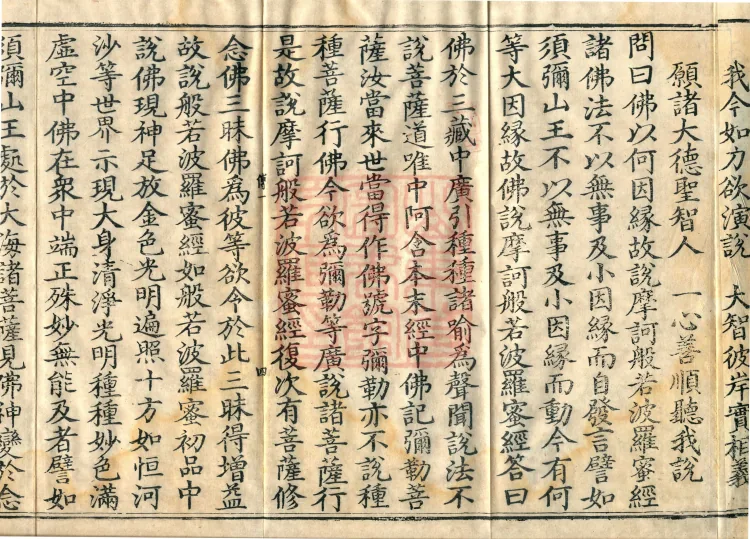 我今如力欲演說　大智彼岸實相義
願諸大德聖智人　一心善順聽我說
問曰佛以何因緣故說摩訶般若波羅蜜經
諸佛法不以無事及小因緣而自發言譬如
須彌山王不以無事及小因緣而動今有何
等大因緣故佛說摩訶般若波羅蜜經荅曰
佛於三藏中廣引種種諸喻為聲聞說法不
說菩薩道唯中阿含本末經中佛記彌勒菩
薩汝當來世當得作佛號字彌勒亦不說種
種菩薩行佛今欲為彌勒等廣說諸菩薩行
是故說摩訶般若波羅蜜經復次有菩薩修
四
念佛三昧佛為彼等欲令於此三昧得增益
故說般若波羅蜜經如般若波羅蜜初品中
說佛現神足放金色光明遍照十方如恒河
沙等世界示現大身清淨光明種種妙色滿
虛空中佛在衆中端正殊妙無能及者譬如
須彌山王處於大海諸菩薩見佛神變於念